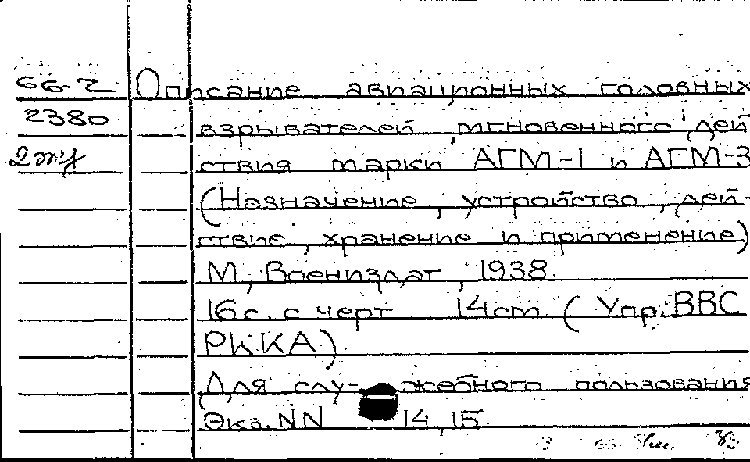 66-2 Описание авиационных головных
2380 взрывателей мгновенного дей
2 экз ствия марки АГМ-1 и АГМ-3
(Назначение, устройство, дей-
ствие, хранение и применение)
М, Воениздат, 1938.
16 с. с черт 14 cm (Упр. ВВС
РККА)
Для слу-жебного пользования
Экз. NN 14, 15